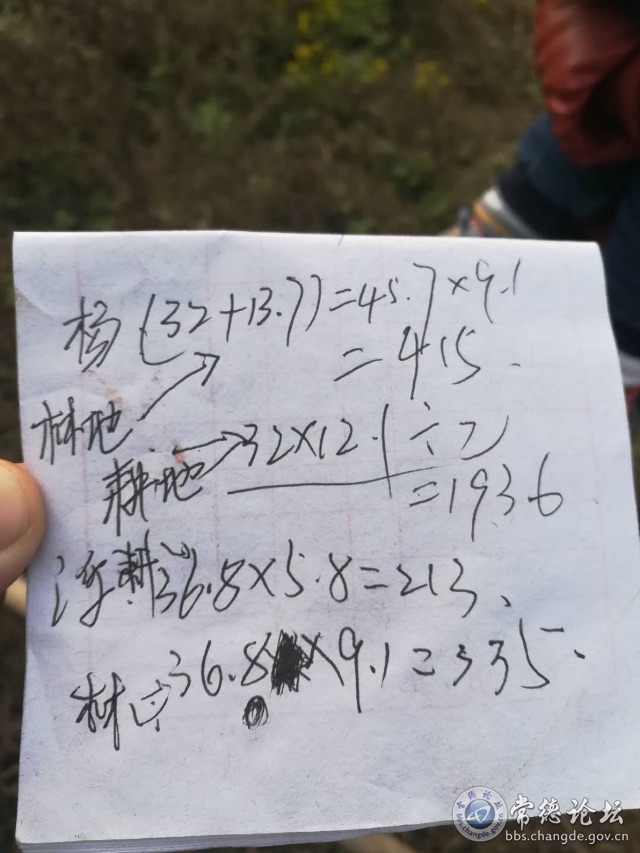 杨(32+13.7)=45.7×9.1
=415.
林地
耕地 32×12.1÷2
=193.6
耕 36.8×5.8=213、
林 36.8×9.1=335.
常德论坛
bbs.changde.gov.cn